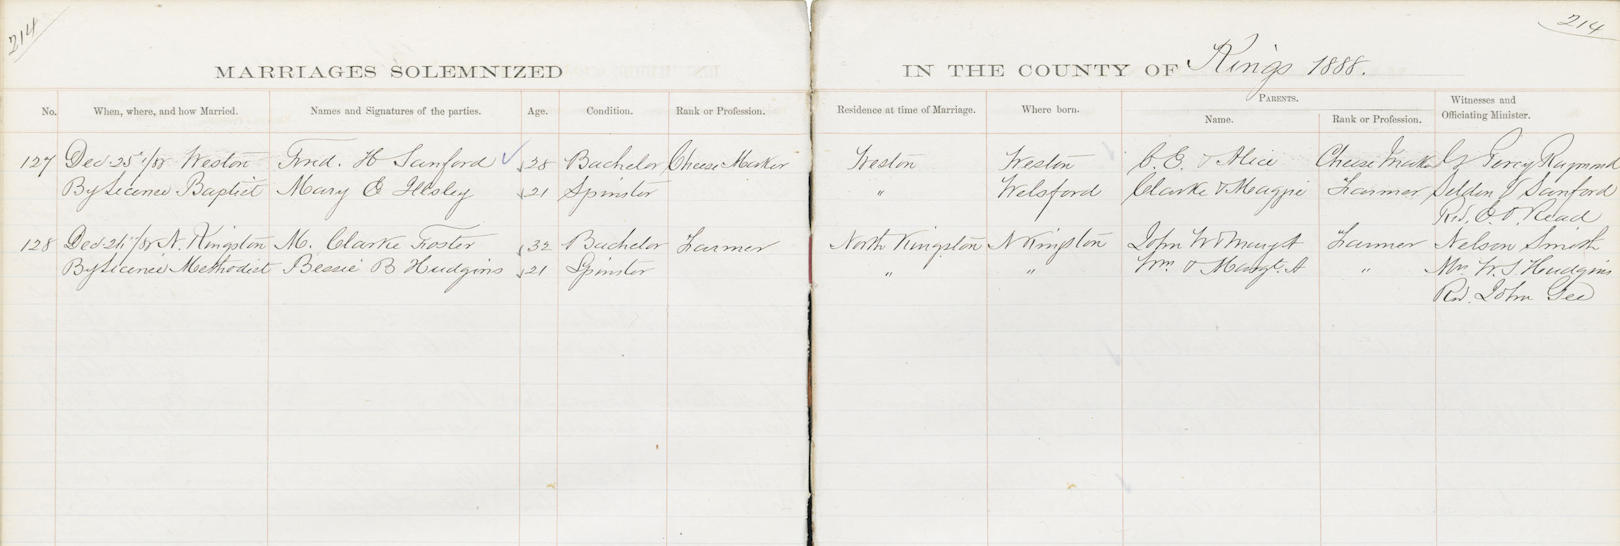 214
214
MARRIAGES SOLEMNIZED IN THE COUNTY OF Kings 1888.
No. When, where, and how Married. Names and Signatures of the parties. Age. Condition. Rank or Profession. Residence at time of Marriage. Where born. PARENTS. Witnesses and
Name. Rank or Profession. Officiating Minister.
127 Dec 25th/88 Weston Fred. H Sanford 28 Bachelor Cheese Marker Weston Weston C. E. & Alice Cheese Mak Percy Raymond
By Licence Baptist Mary E Illsley 21 Spinster " Welsford Clarke & Maggie Farmer Seldon J Sanford
Rd. E O. Read
128 Dec /88 N. Kingston M. Clarke Foster 32 Bachelor Farmer North Kingston N Kingston John W & Margt Farmer Nelson Smith
By Licence Methodist Bessie B Hudgins 21 Spinster " " Wm & Margt. A " Mrs W. S. Hudgins
Rd. John Gee